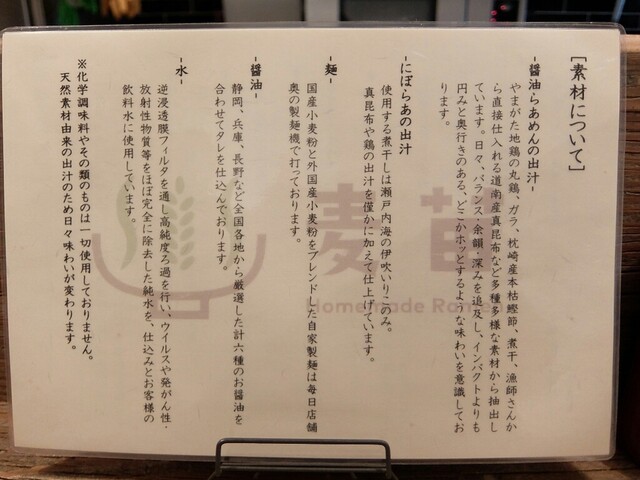 ［素材について］
-醤油らあめんの出汁-
やまがた地鶏の丸鶏、ガラ、枕崎産本枯鰹節、煮干、漁師さんか
ら直接仕入れる道南産真昆布など多種多様な素材から抽出し
ています。日々、バランス・余韻・深みを追及し、インパクトよりも
円みと奥行きのある、どこかホッとするような味わいを意識してお
ります。
-にぼらあの出汁
使用する煮干しは瀬戸内海の伊吹いりこのみ。
真昆布や鶏の出汁を僅かに加えて仕上げています。
-麺-
国産小麦粉と外国産小麦粉をブレンドした自家製麺は毎日店舗
奥の製麺機で打っております。
-醤油-
静岡、兵庫、長野など全国各地から厳選した計六種のお醤油を
合わせてタレを仕込んでおります。
-水-
逆浸透膜フィルタを通し高純度ろ過を行い、ウイルスや発がん性・
放射性物質等をほぼ完全に除去した純水を、仕込みとお客様の
飲料水に使用しています。
※化学調味料やその類のものは一切使用しておりません。
天然素材由来の出汁のため日々味わいが変わります。
麦苗
Homemade Ram